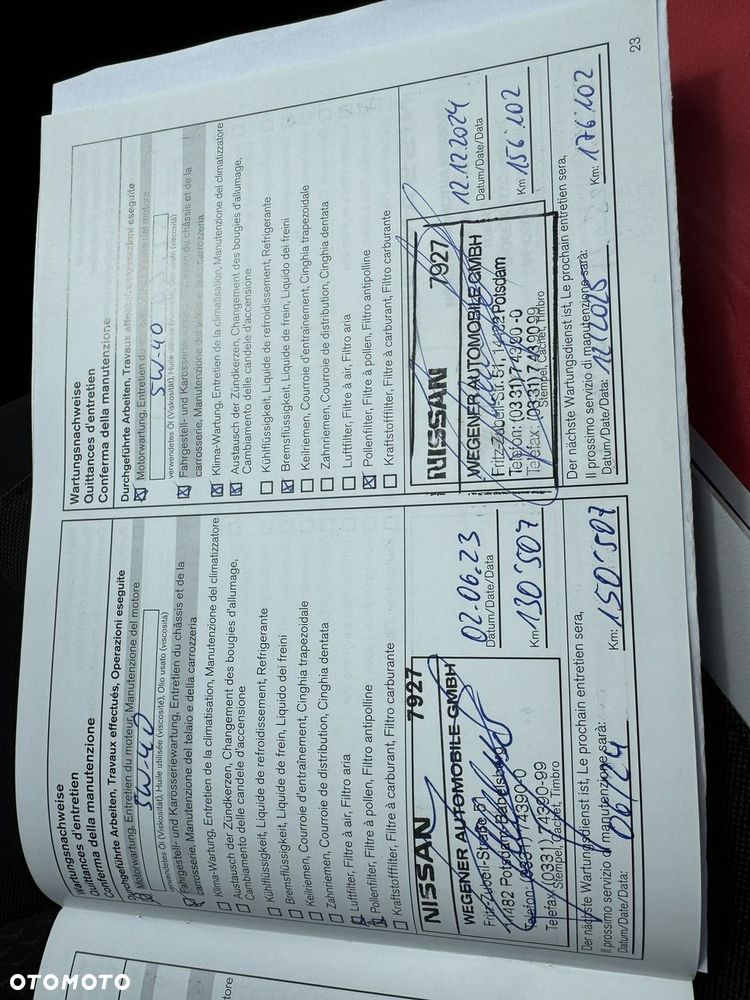 Wartungsnachweise
Quittances d'entretien
Conferma della manutenzione
Durchgeführte Arbeiten, Travaux effectués, Operazioni eseguite
Motorwartung, Entretien du moteur, Manutenzione del motore
5W-40
verwendetes Öl (Viskosität), Huile utilisée (viscosité), Olio usato (viscosità)
Fahrgestell- und Karosseriewartung, Entretien du châssis et de la
carrosserie, Manutenzione del telaio e della carrozzeria
Klima-Wartung, Entretien de la climatisation, Manutenzione del climatizzatore
Austausch der Zündkerzen, Changement des bougies d'allumage,
Cambiamento delle candele d'accensione
Kühlflüssigkeit, Liquide de refroidissement, Refrigerante
Bremsflüssigkeit, Liquide de frein, Liquido dei freini
Keilriemen, Courroie d'entraînement, Cinghia trapezoidale
Zahnriemen, Courroie de distribution, Cinghia dentata
Luftfilter, Filtre à air, Filtro aria
Pollenfilter, Filtre à pollen, Filtro antipolline
Kraftstofffilter, Filtre à carburant, Filtro carburante
NISSAN 7927
WEGENER AUTOMOBILE GMBH
Fritz-Zubeil-Straße 51
14482 Potsdam-Babelsberg
Telefon: (0331) 74390-0
Telefax: (0331) 74390-99
Stempel, Cachet, Timbro
02.06.23
Datum/Date/Data
Km 130'507
Der nächste Wartungsdienst ist, Le prochain entretien sera,
Il prossimo servizio di manutenzione sarà:
Datum/Date/Data: 06/24
Km: 150'507
Wartungsnachweise
Quittances d'entretien
Conferma della manutenzione
Durchgeführte Arbeiten, Travaux effectués, Operazioni eseguite
Motorwartung, Entretien du moteur, Manutenzione del motore
5W-40
verwendetes Öl (Viskosität), Huile utilisée (viscosité), Olio usato (viscosità)
Fahrgestell- und Karosseriewartung, Entretien du châssis et de la
carrosserie, Manutenzione del telaio e della carrozzeria
Klima-Wartung, Entretien de la climatisation, Manutenzione del climatizzatore
Austausch der Zündkerzen, Changement des bougies d'allumage,
Cambiamento delle candele d'accensione
Kühlflüssigkeit, Liquide de refroidissement, Refrigerante
Bremsflüssigkeit, Liquide de frein, Liquido dei freini
Keilriemen, Courroie d'entraînement, Cinghia trapezoidale
Zahnriemen, Courroie de distribution, Cinghia dentata
Luftfilter, Filtre à air, Filtro aria
Pollenfilter, Filtre à pollen, Filtro antipolline
Kraftstofffilter, Filtre à carburant, Filtro carburante
NISSAN 7927
WEGENER AUTOMOBILE GMBH
Fritz-Zubeil-Str. 51, 14482 Potsdam
Telefon: (0331) 7 43 90-0
Telefax: (0331) 7 43 90 99
Stempel, Cachet, Timbro
12.12.2024
Datum/Date/Data
Km 156'102
Der nächste Wartungsdienst ist, Le prochain entretien sera,
Il prossimo servizio di manutenzione sarà:
Datum/Date/Data: 12/2025
Km: 176'102
23
OTOMOTO